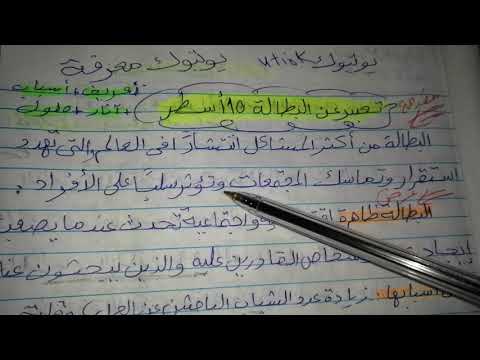 يوتيوك utiok يوتيوك معرفة
تعريف + أسباب
+ آثار + حلول
تعبير عن البطالة 10 أسطر
البطالة من أكثر المشاكل انتشارا في العالم والتي تهدد
استقرار وتماسك المجتمعات وتؤثر سلبا على الأفراد.
البطالة ظاهرة واجتماعية تحدث عندما يصعب
إيجاد القادرين عليه والذين يبحثون عنه
أسبابها: زيادة عدد الشباب الباحثين عن العمل وقلة